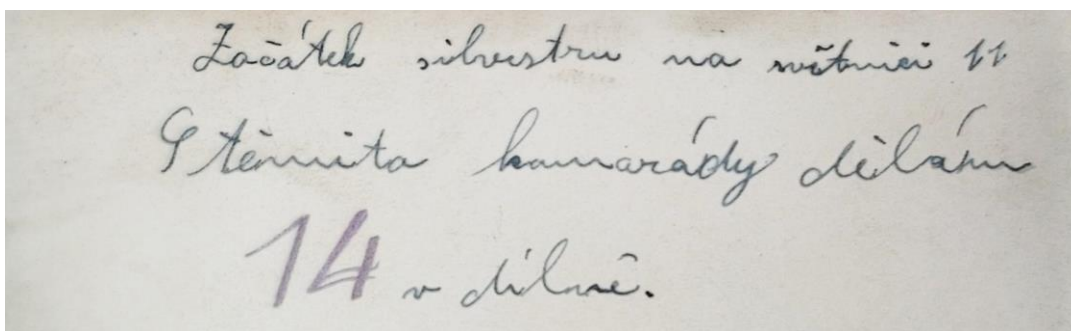 Začátek silvestru na světnici 11
S těmito kamarády dělám
14 v dílně.